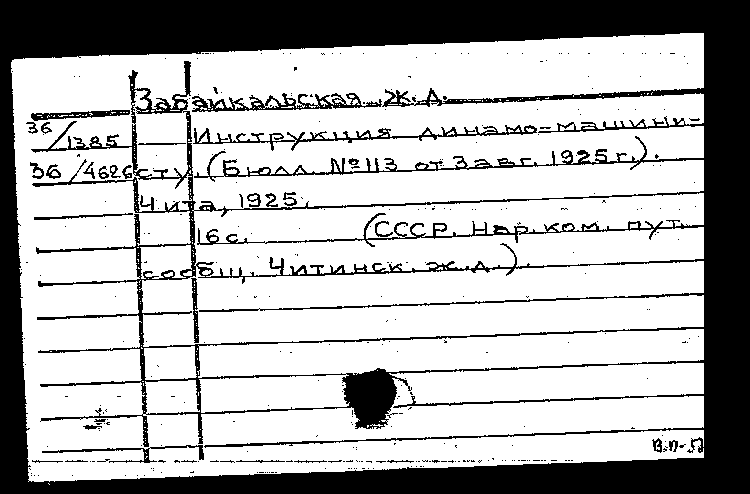 Забайкальская ж. д.
36/1385 Инструкция динамо-машини-
36/4626 сту. (Бюлл. №113 от 3 авг. 1925 г.).
Чита, 1925.
16 с. (СССР. Нар. ком. пут.
сообщ. Читинск. ж.д.).